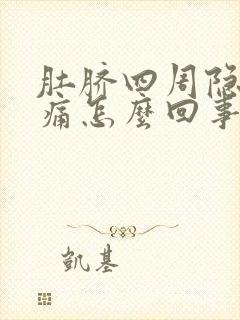 肚脐四周隐
痛怎麼回事
凯基